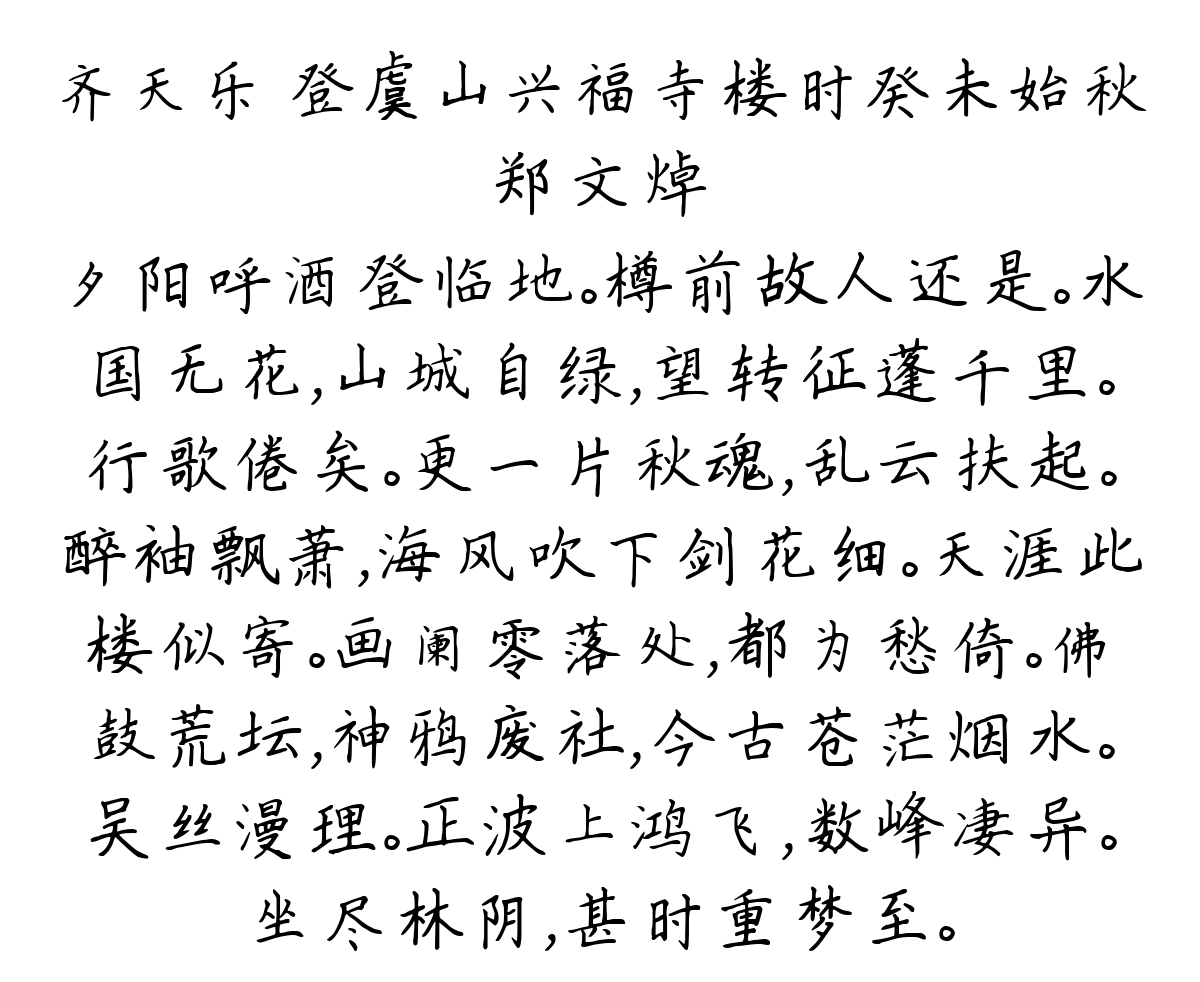 齐天乐 登虞山兴福寺楼时癸未始秋
郑文焯
夕阳呼酒登临地。樽前故人还是。水
国无花,山城自绿,望转征蓬千里。
行歌倦矣。更一片秋魂,乱云扶起。
醉袖飘萧,海风吹下剑花细。天涯此
楼似寄。画阑零落处,都为愁倚。佛
鼓荒坛,神鸦废社,今古苍茫烟水。
吴丝漫理。正波上鸿飞,数峰凄异。
坐尽林阴,甚时重梦至。